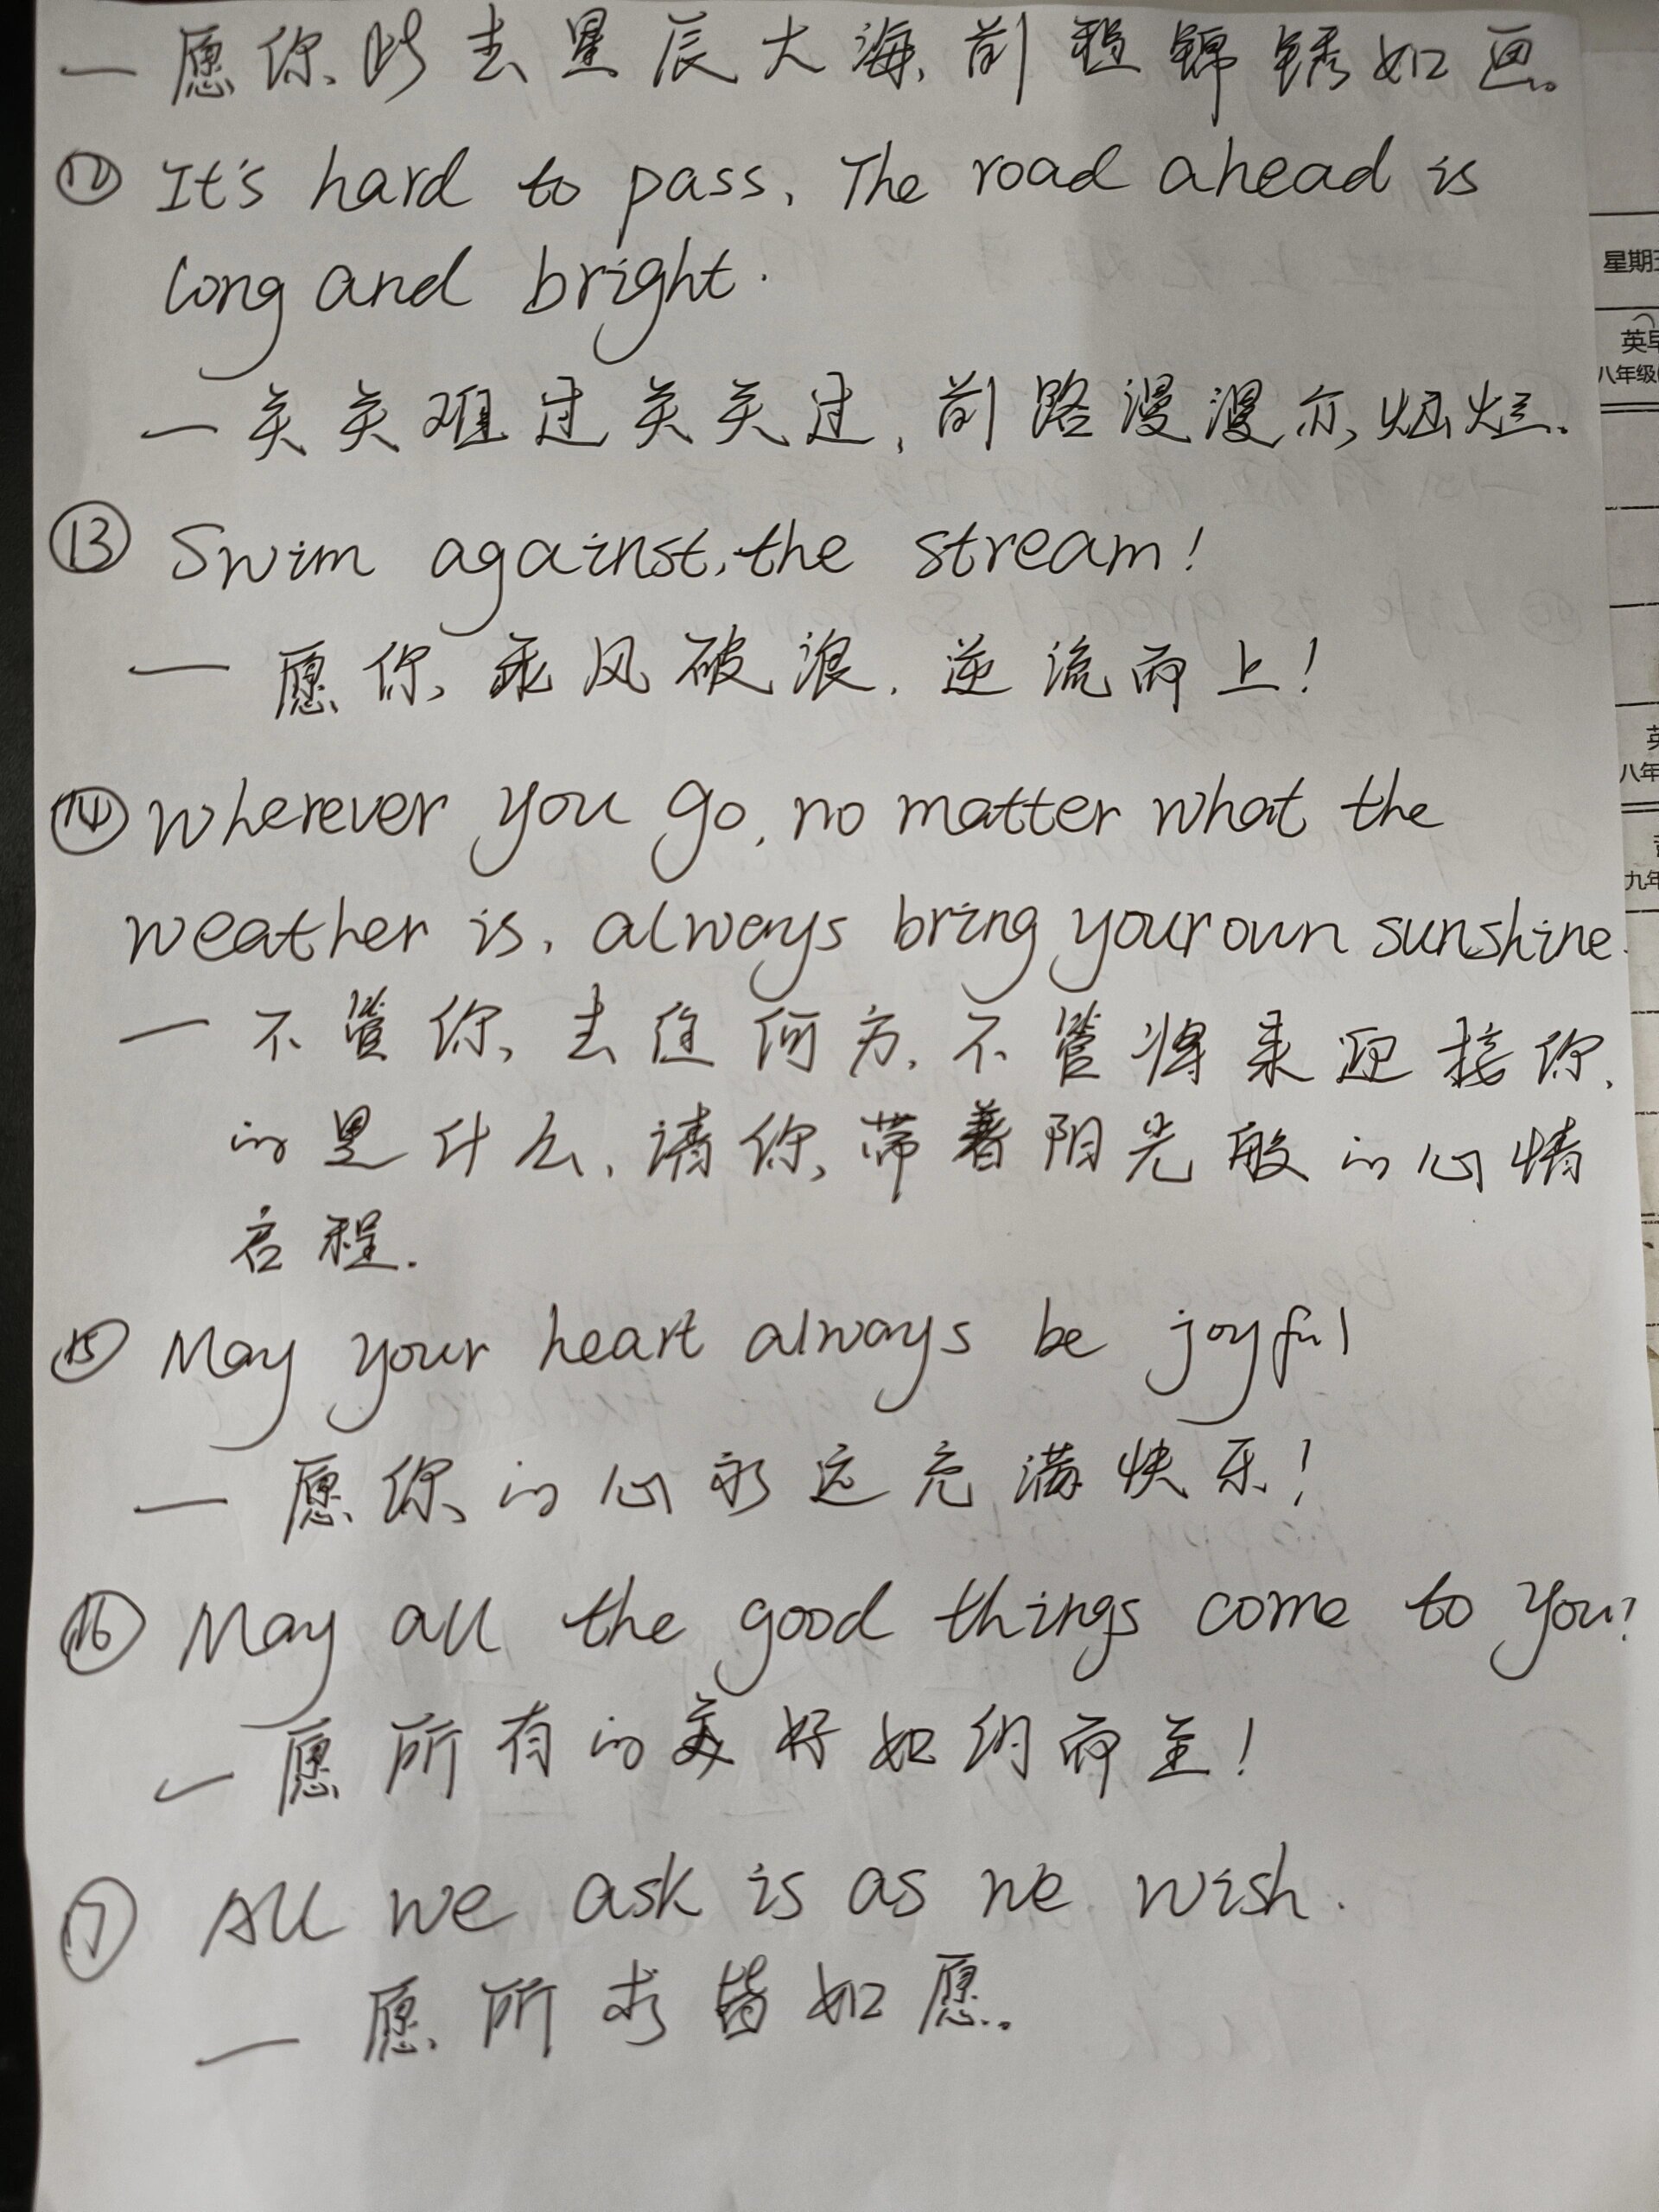 一愿你此去星辰大海,前程锦锈如画。
⑫ It's hard to pass, The road ahead is
long and bright.
一关关难过关关过,前路漫漫亦灿烂.
⑬ Swim against the stream!
一愿你乘风破浪,逆流而上!
⑭ Wherever you go, no matter what the
weather is, always bring your own sunshine.
一不管你去往何方,不管将来迎接你
的是什么,请你带着阳光般的心情
启程.
⑮ May your heart always be joyful
一愿你的心永远充满快乐!
⑯ May all the good things come to you!
一愿所有的美好如约而至!
⑰ All we ask is as we wish.
一愿所求皆如愿.
英早
八年级
八年
九年